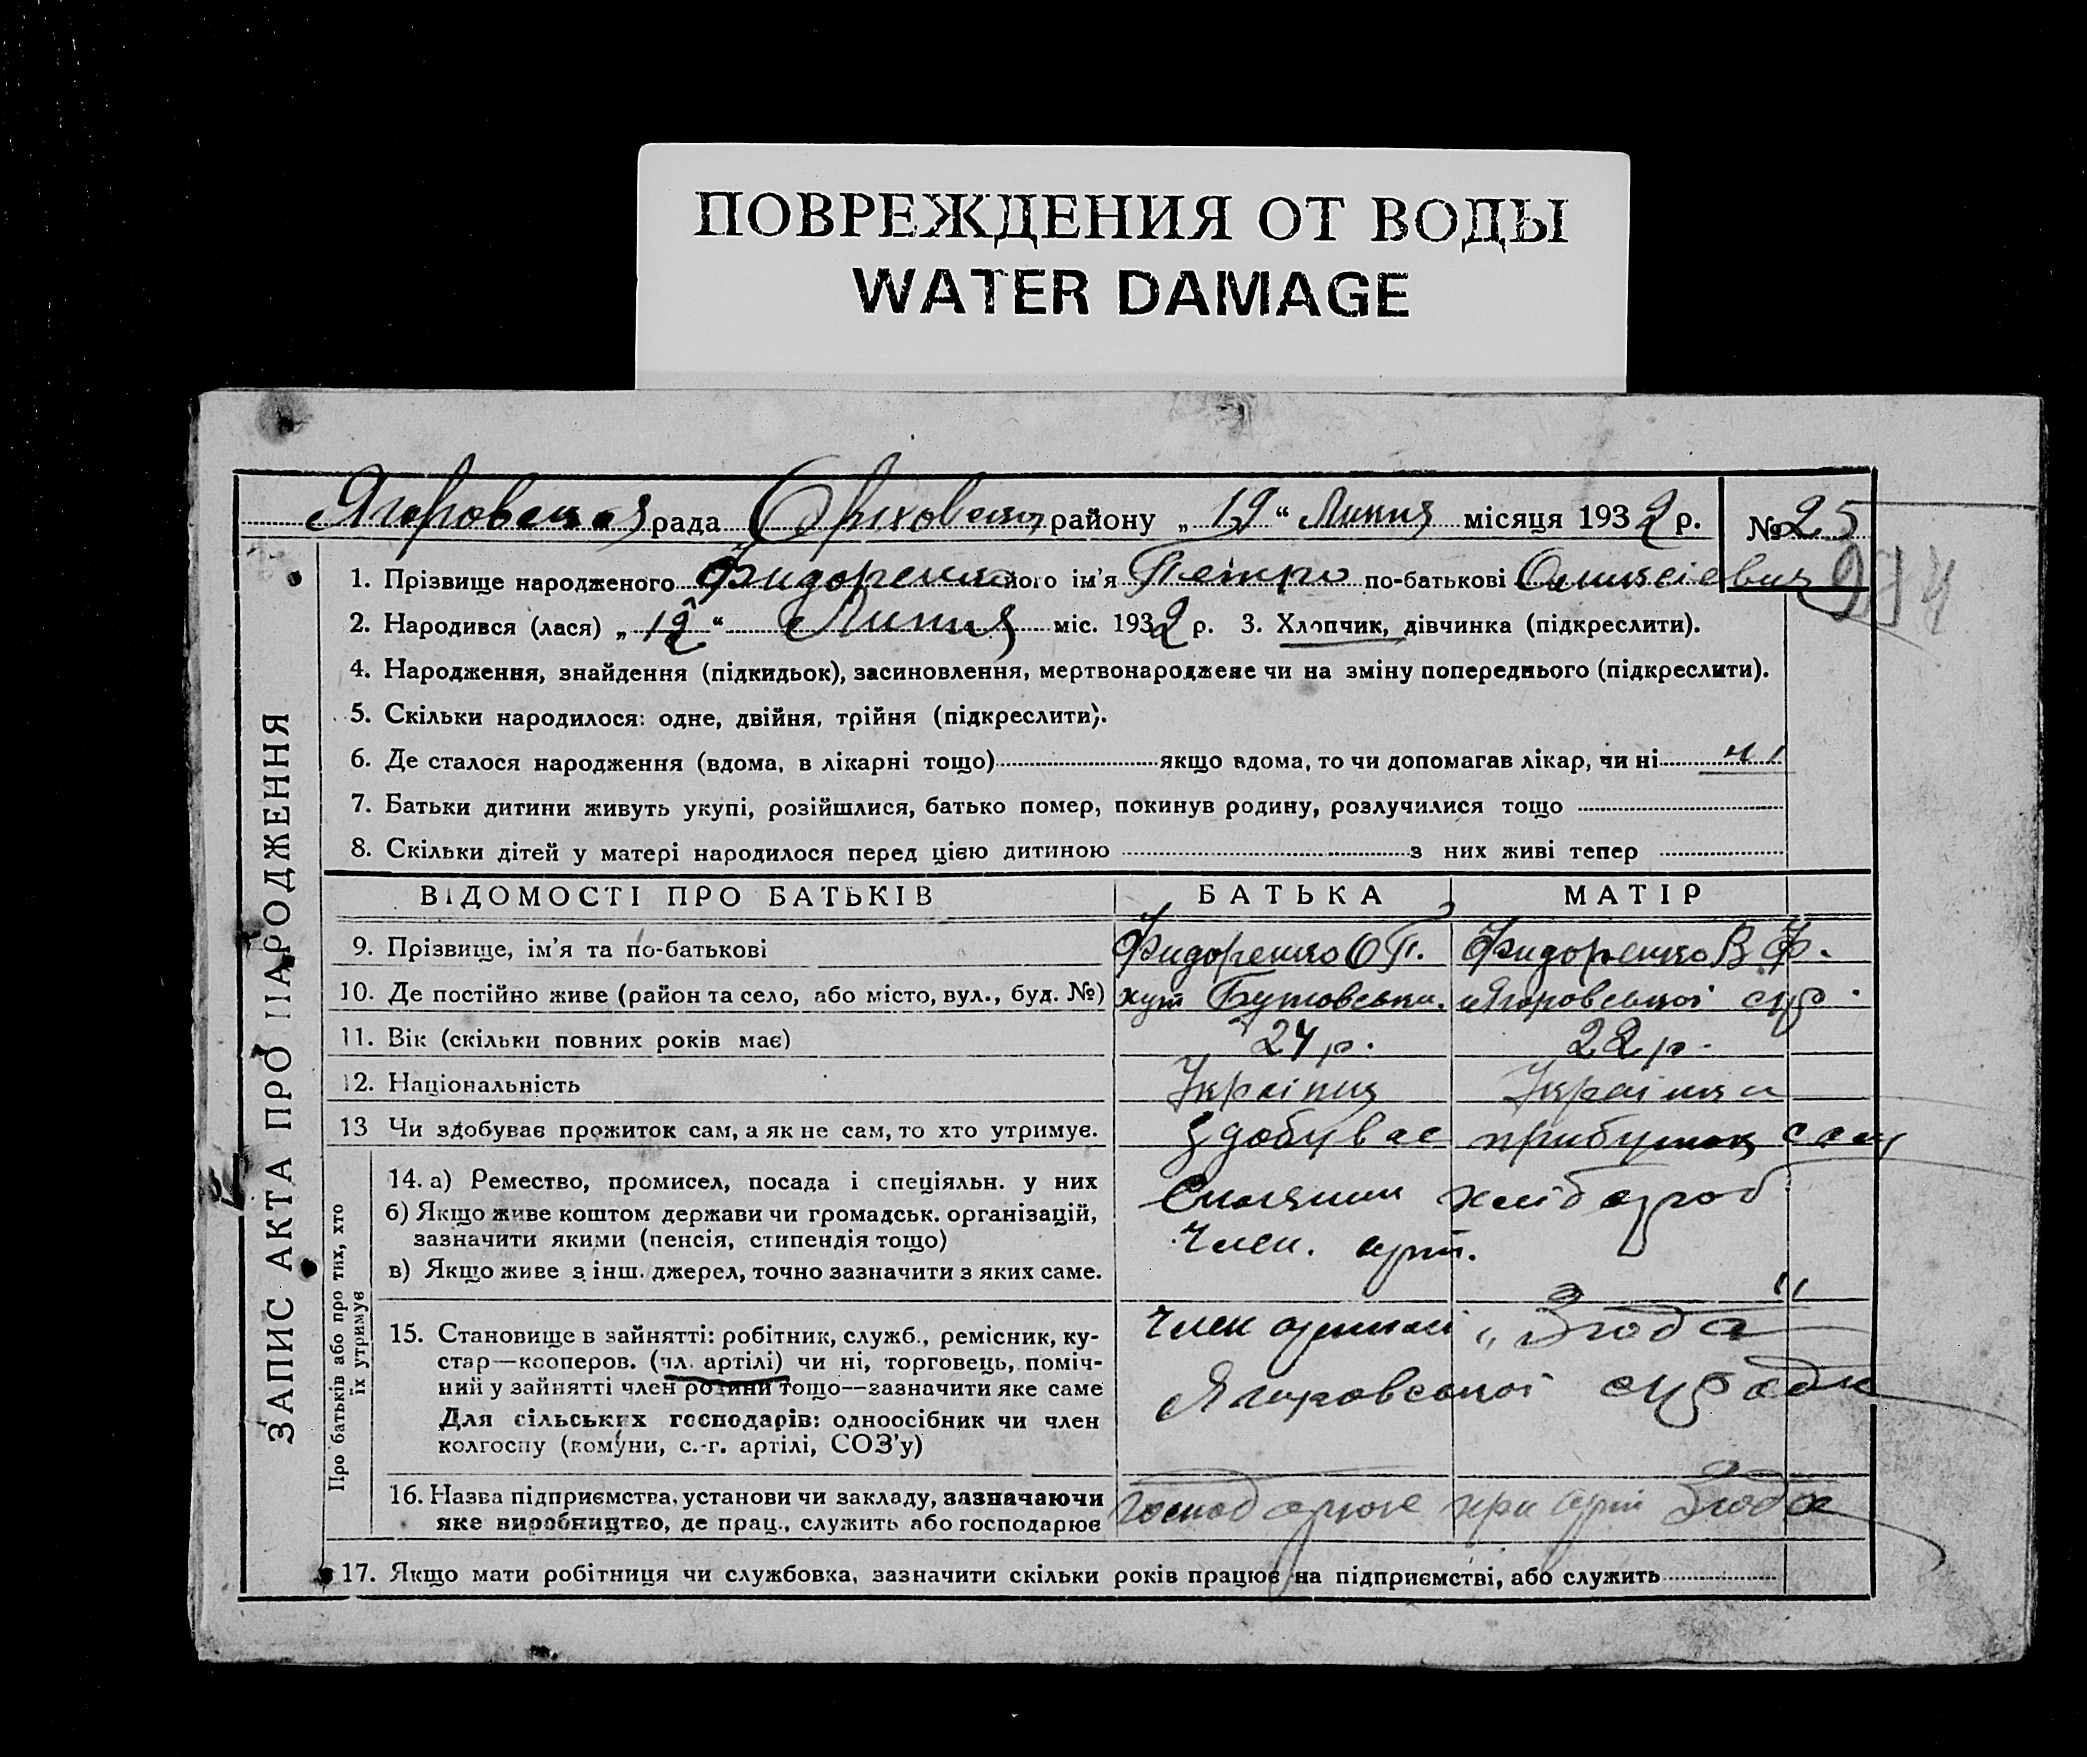 ПОВРЕЖДЕНИЯ ОТ ВОДЫ
WATER DAMAGE
рада району „ 12 “ Липня місяця 1932 р. № 25
1. Прізвище народженого Фидоренко його ім'я Петро по-батькові
2. Народився (лася) „ 12 “ Липня міс. 1932 р. 3. Хлопчик, дівчинка (підкреслити).
4. Народження, знайдення (підкидьок), засиновлення, мертвонароджене чи на зміну попереднього (підкреслити).
5. Скільки народилося: одне, двійня, трійня (підкреслити).
6. Де сталося народження (вдома, в лікарні тощо) якщо вдома, то чи допомагав лікар, чи ні ні
7. Батьки дитини живуть укупі, розійшлися, батько помер, покинув родину, розлучилися тощо
8. Скільки дітей у матері народилося перед цією дитиною з них живі тепер
ВІДОМОСТІ ПРО БАТЬКІВ БАТЬКА МАТІР
9. Прізвище, ім'я та по-батькові Фидоренко О П. Фидоренко В Ф.
10. Де постійно живе (район та село, або місто, вул., буд. №) хут
11. Вік (скільки повних років має) 24 р. 22 р.
12. Національність Україн
13 Чи здобуває прожиток сам, а як не сам, то хто утримує. здобуває прибуток сам
14. а) Ремество, промисел, посада і спеціяльн. у них хлібороб
б) Якщо живе коштом держави чи громадськ. організацій,
зазначити якими (пенсія, стипендія тощо) Член. арт.
в) Якщо живе з інш. джерел, точно зазначити з яких саме.
15. Становище в зайнятті: робітник, служб., ремісник, ку- Член артілі „Згода"
стар—кооперов. (чл. артілі) чи ні, торговець, поміч-
ний у зайнятті член родини тощо—зазначити яке саме
Для сільських господарів: одноосібник чи член
колгоспу (комуни, с.-г. артілі, СОЗ'у)
16. Назва підприємства, установи чи закладу, зазначаючи господарює при арт Згода
яке виробництво, де прац., служить або господарює
17. Якщо мати робітниця чи службовка, зазначити скільки років працює на підприємстві, або служить
ЗАПИС АКТА ПРО НАРОДЖЕННЯ
Про батьків або про тих, хто
їх утримує